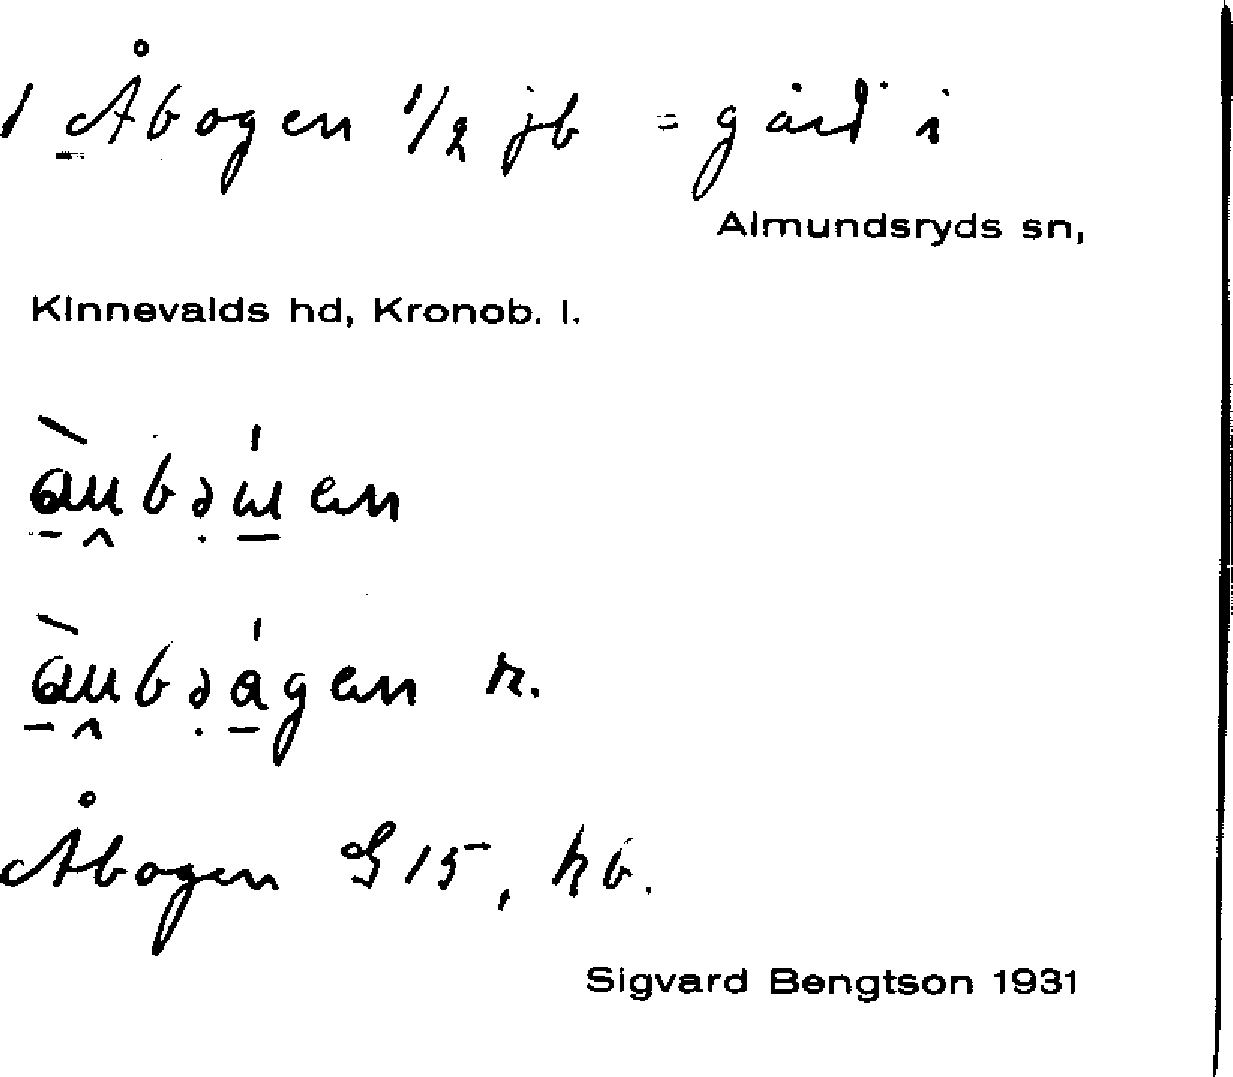 1 Åbogen 1/2 jb = gård i
Almundsryds sn,
Kinnevalds hd, Kronob. l.
Åbogen G 15, kb.
Sigvard Bengtson 1931